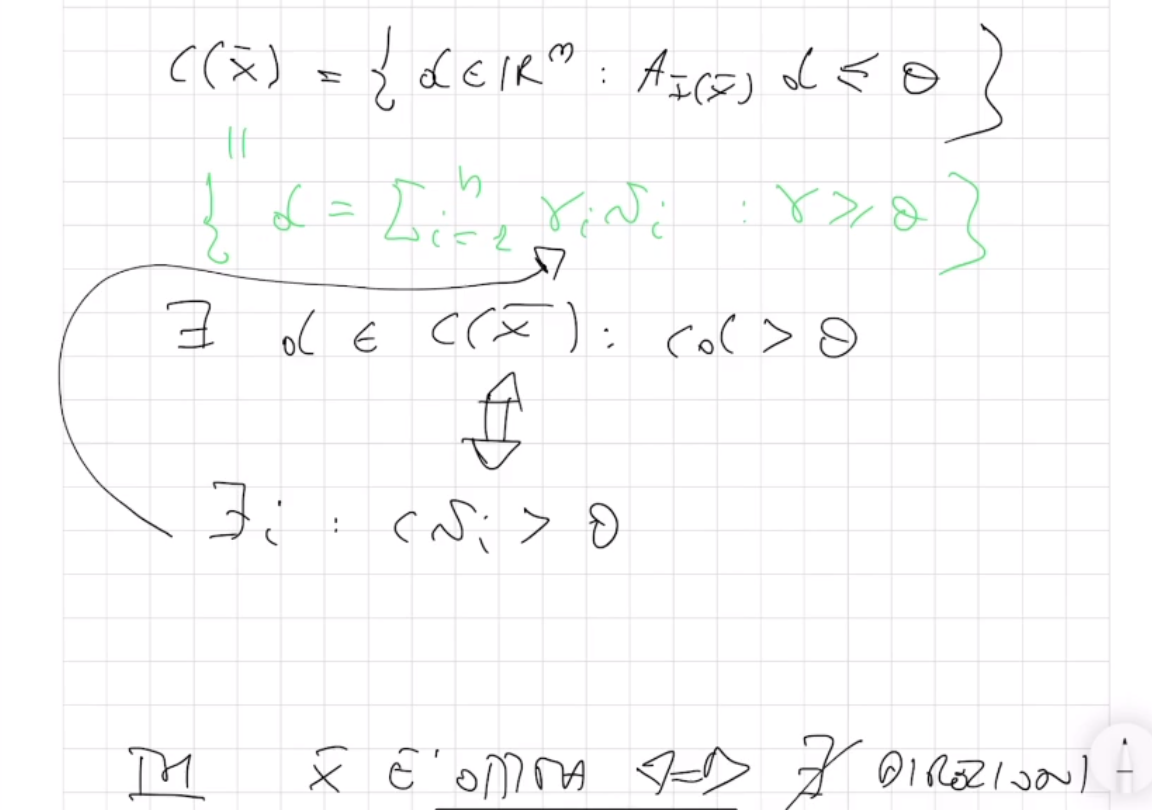 C(x̄) = { d ∈ ℝⁿ : A_I(x̄) d ≤ 0 }
||
{ d = Σ_{i=1}^n γ_i v_i : γ ≥ 0 }
∃ d ∈ C(x̄) : cd > 0
⇕
∃i : c v_i > 0
TH x̄ E' OTTIMA ⇔ ∄ DIREZIONI